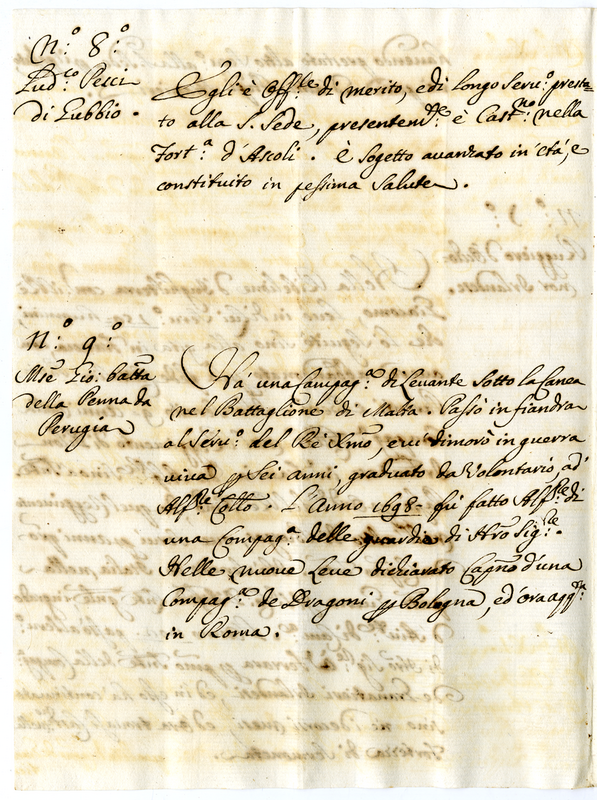 N.º 8.º
Lud.co Pesci
di Gubbio.
Egli è Off.le di merito, e di longo Serv.º presta=
to alla S. Sede, presentem.te è Cast.no nella
Fort.a d'Ascoli. è Sogetto avanzato in età, e
constituito in pessima Salute.
N.º 9.º
Mse Gio: batta
della Penna da
Perugia
Hà una Campag.a di Levante Sotto la Canea
nel Battaglione di Malta. Passò in fiandra
al Serv.º del Rè Xmo, e vi dimorò in guerra
viva p Sei anni, graduato da Volontario, ad
Alf.re Collo. L'Anno 1698 fù fatto Alf.re di
una Compag.a delle guardie di Nro Sig.re
Nelle nuove Leve dichiarato Capno d'una
Compag.a de Dragoni p Bologna, ed ora agg.to
in Roma.